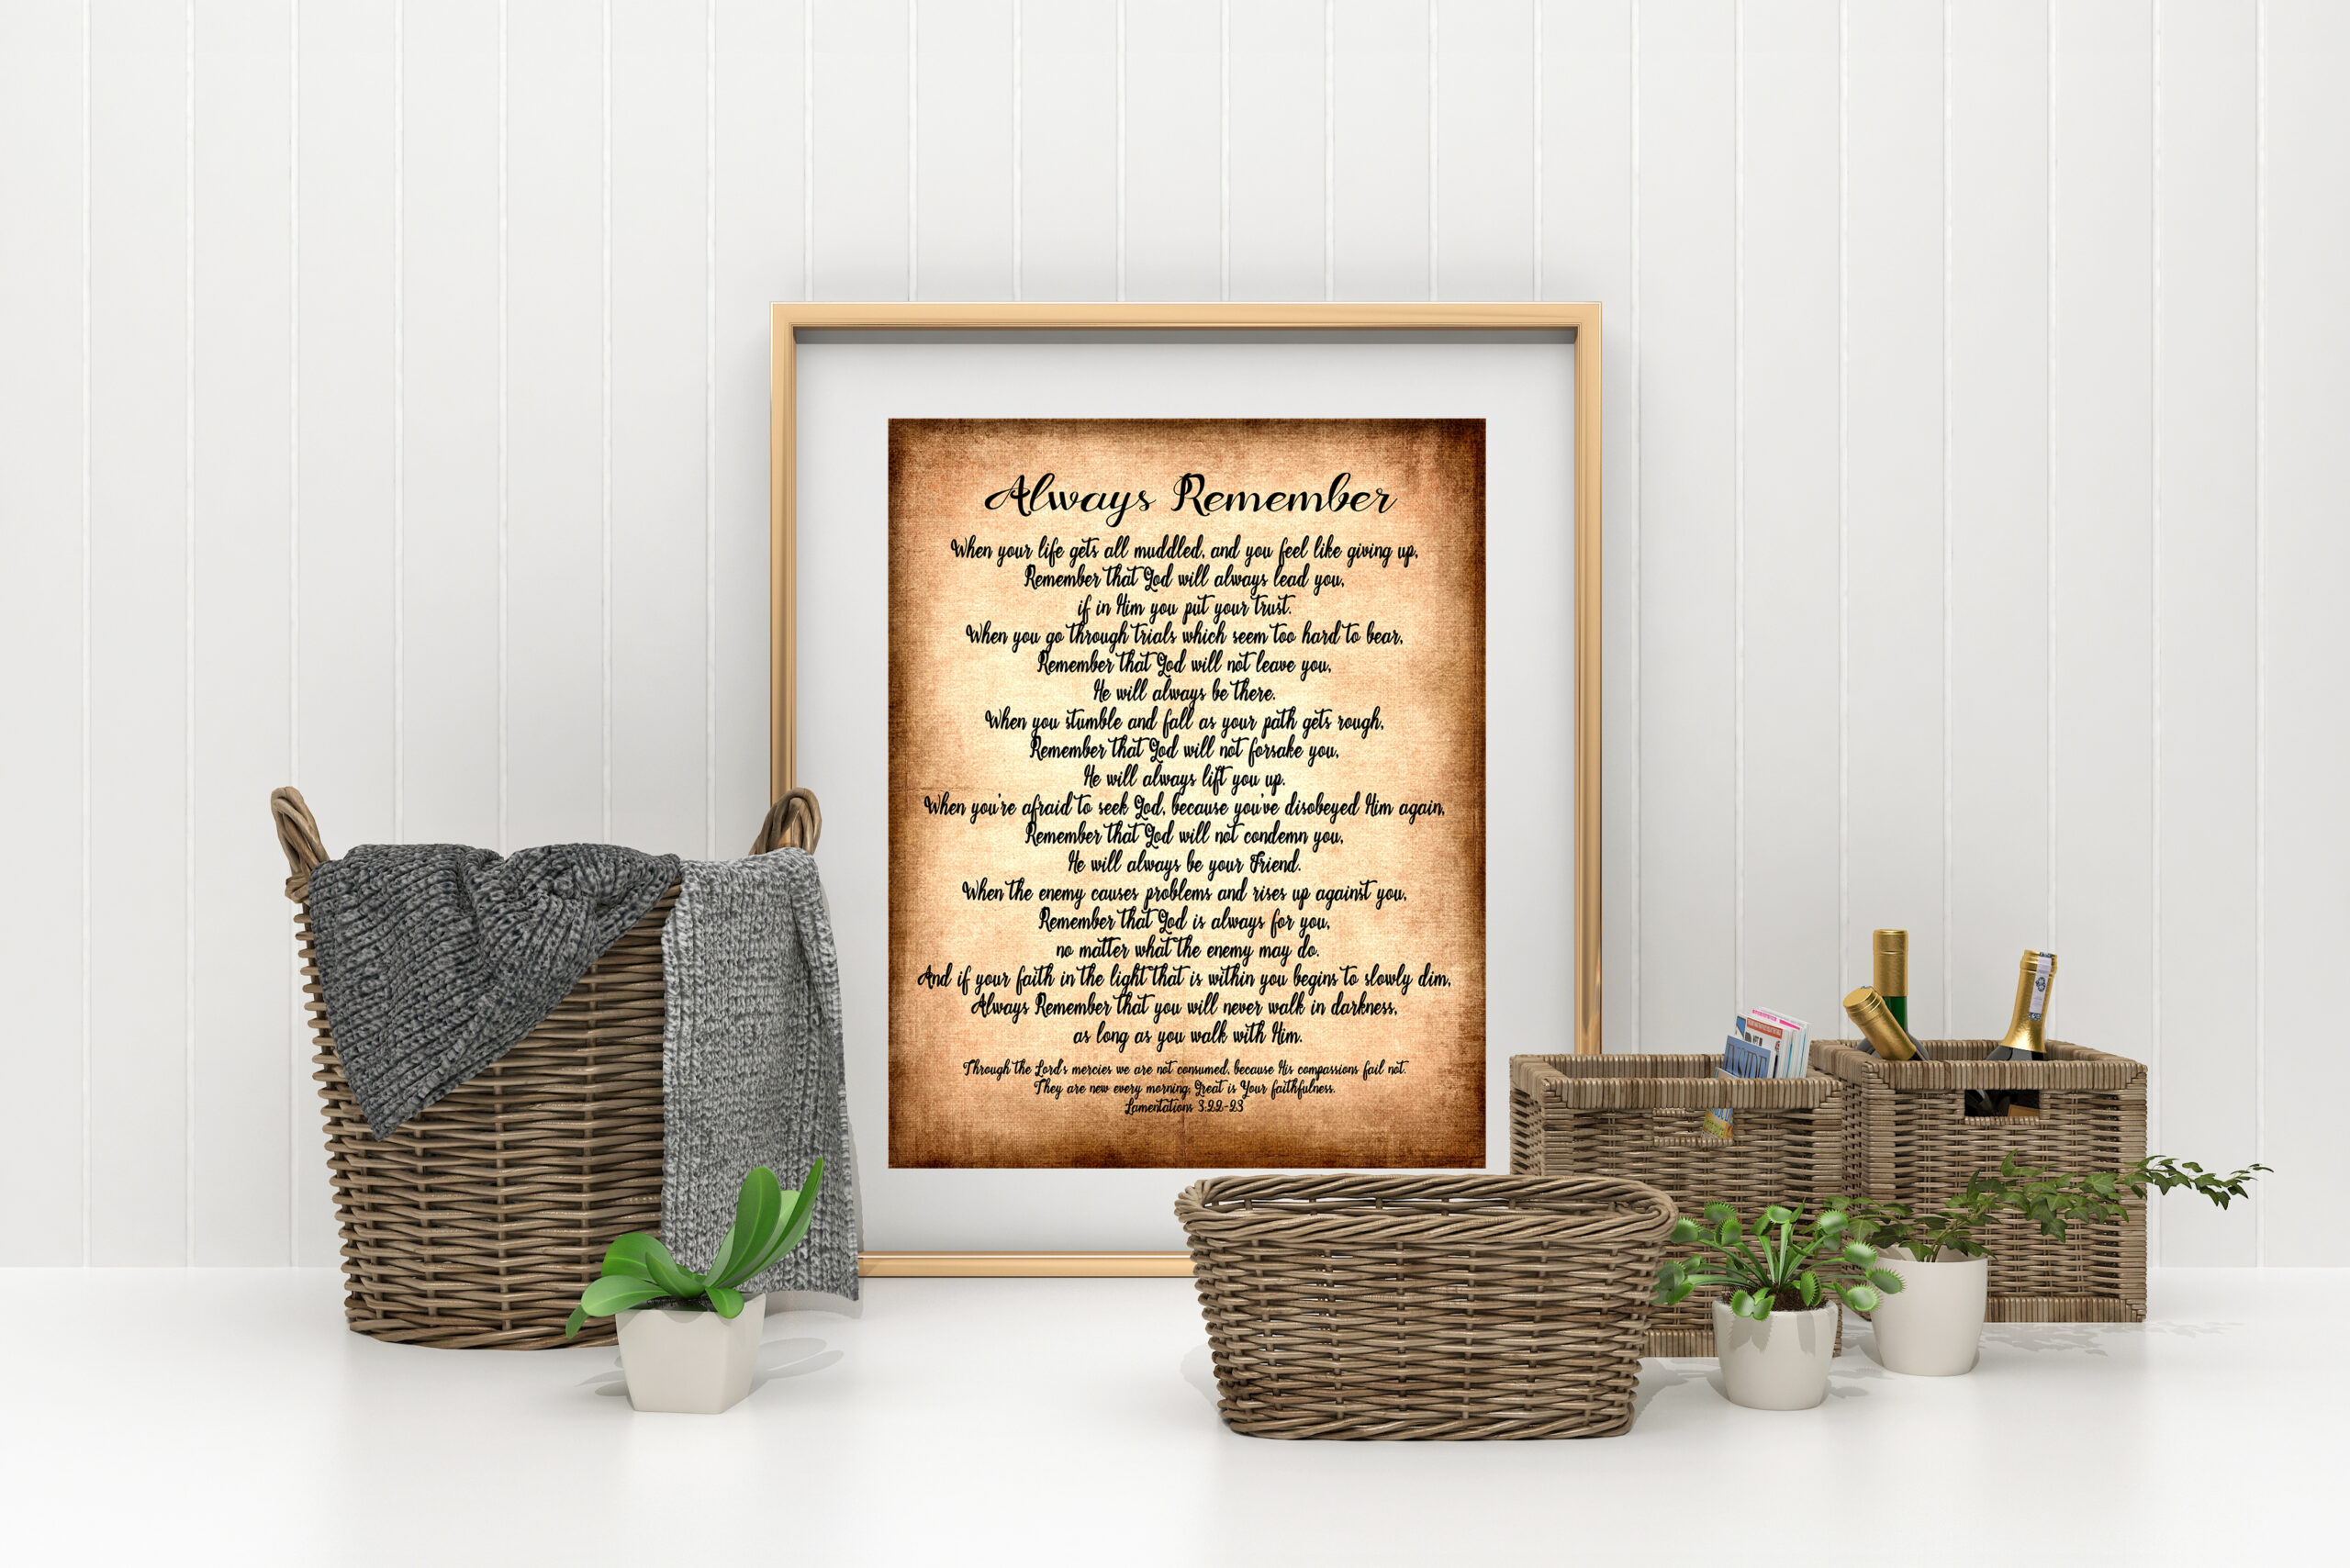 Always Remember
When your life gets all muddled, and you feel like giving up,
Remember that God will always lead you,
if in Him you put your trust.
When you go through trials which seem too hard to bear,
Remember that God will not leave you,
He will always be there.
When you stumble and fall as your path gets rough,
Remember that God will not forsake you,
He will always lift you up.
When you're afraid to seek God, because you've disobeyed Him again,
Remember that God will not condemn you,
He will always be your Friend.
When the enemy causes problems and rises up against you,
Remember that God is always for you,
no matter what the enemy may do.
And if your faith in the light that is within you begins to slowly dim,
Always Remember that you will never walk in darkness,
as long as you walk with Him.
Through the Lord's mercies we are not consumed, because His compassions fail not.
They are new every morning; Great is Your faithfulness.
Lamentations 3:22-23